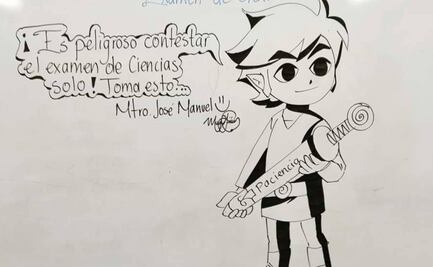 Examen de
¡Es peligroso contestar
el examen de Ciencias
solo! Toma esto...
Mtro. José Manuel
Paciencia